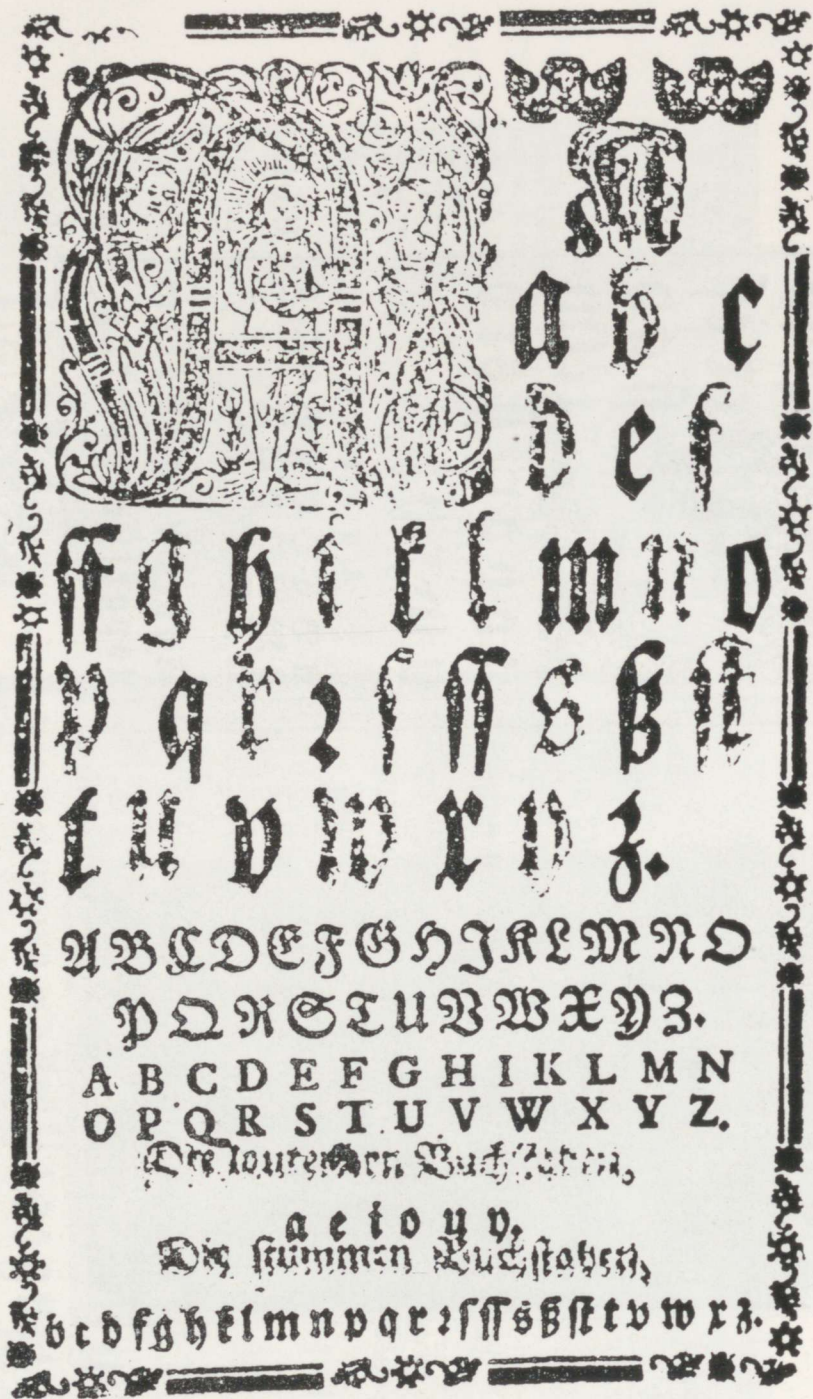 A
A
a b c
d e f
ff g h i k l m n o
p q r ꝛ ſ ſſ s ß ſt
t u v w x y z.
A B C D E F G H I K L M N O
P Q R S T U V W X Y Z.
A B C D E F G H I K L M N
O P Q R S T U V W X Y Z.
Die Buchſtaben,
a e i o u y.
Die ſtummen Buchſtaben,
b c d f g h k l m n p q r ꝛ ſ ſſ s ß ſt t v w x z.